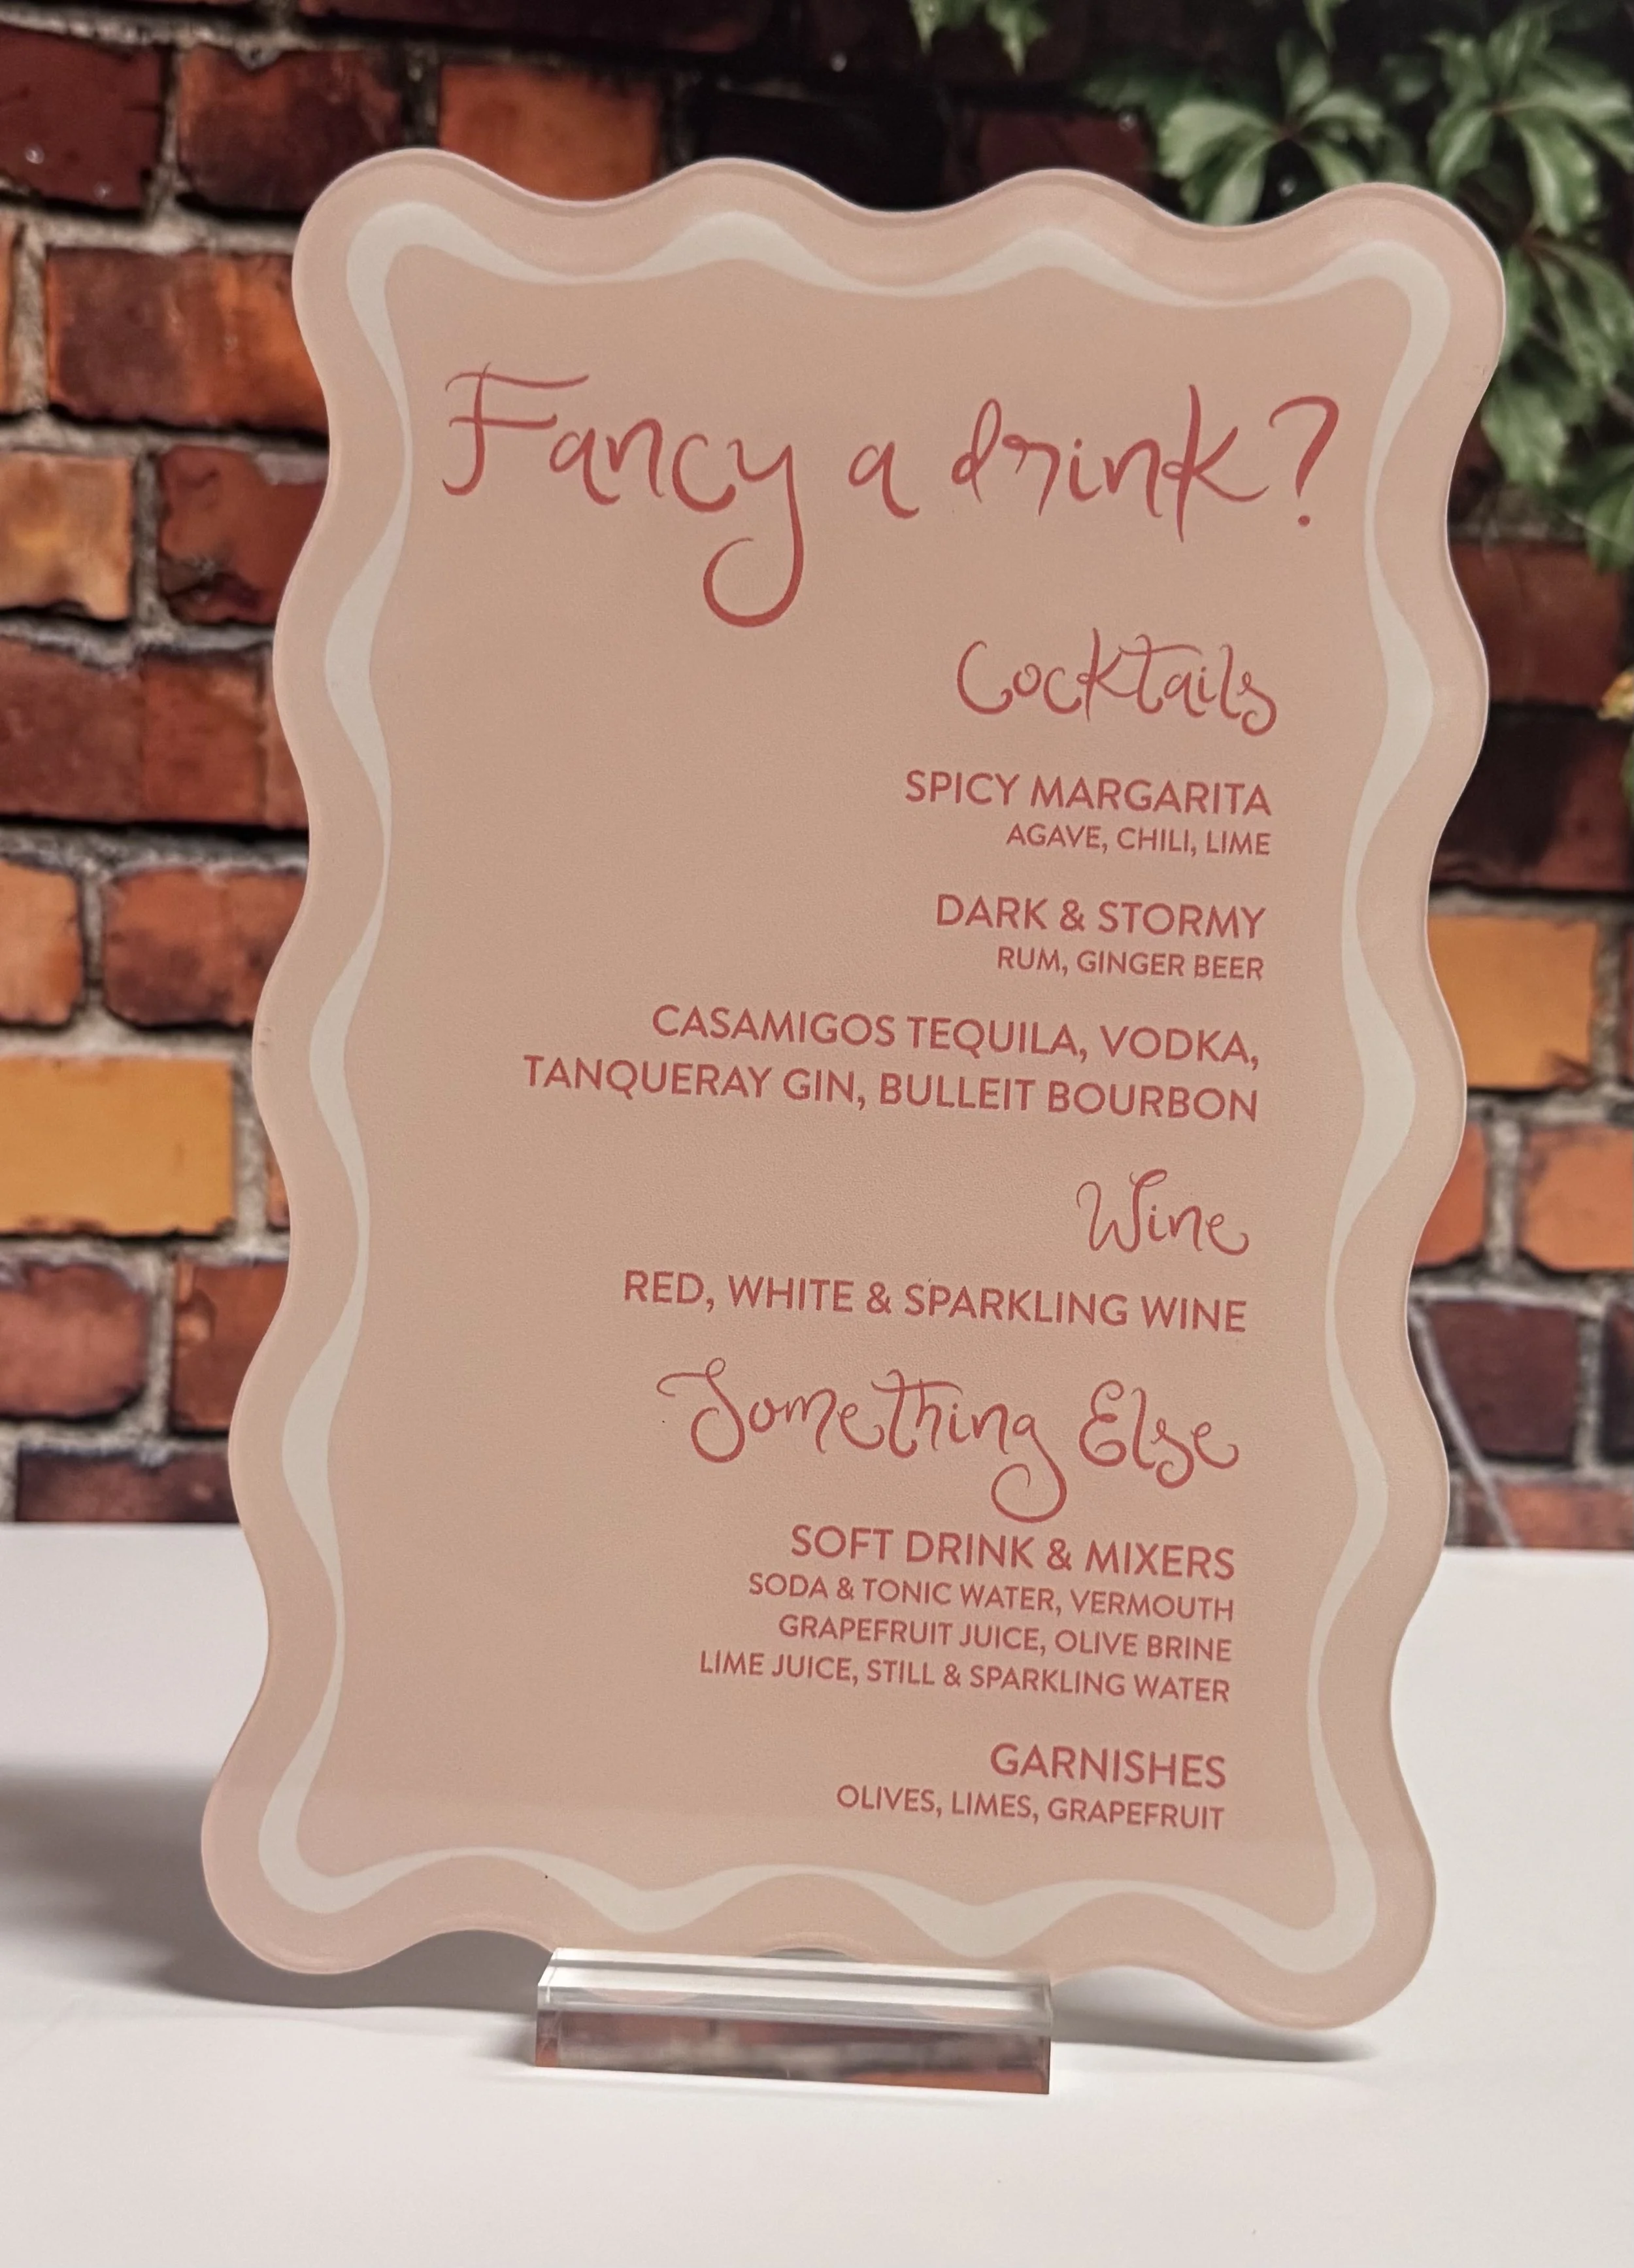 Fancy a drink?
Cocktails
SPICY MARGARITA
AGAVE, CHILI, LIME
DARK & STORMY
RUM, GINGER BEER
CASAMIGOS TEQUILA, VODKA,
TANQUERAY GIN, BULLEIT BOURBON
Wine
RED, WHITE & SPARKLING WINE
Something Else
SOFT DRINK & MIXERS
SODA & TONIC WATER, VERMOUTH
GRAPEFRUIT JUICE, OLIVE BRINE
LIME JUICE, STILL & SPARKLING WATER
GARNISHES
OLIVES, LIMES, GRAPEFRUIT